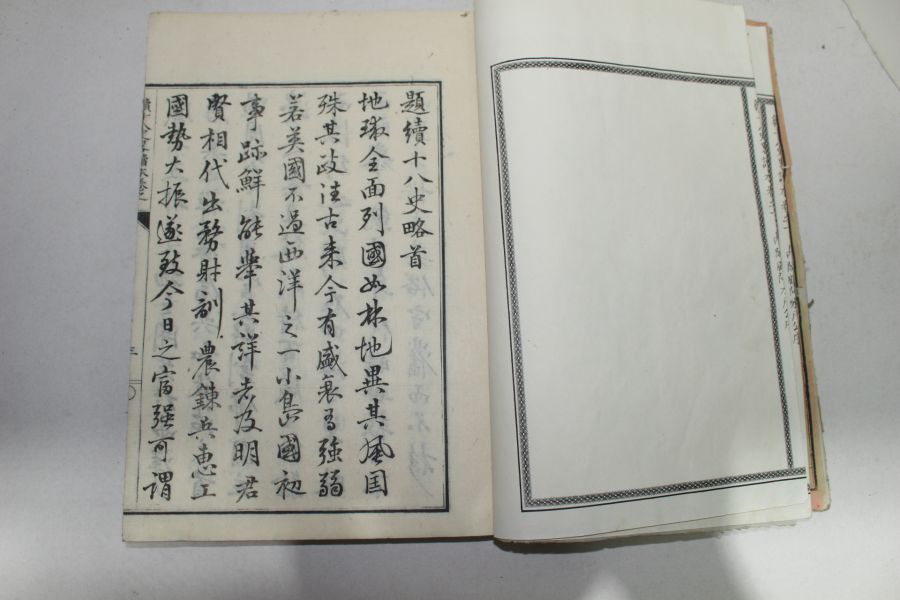 題續十八史略首
地球全面列國如林地異其風国
殊其政法古来今有盛衰有強弱
若英國不過西洋之一小島國初
事跡鮮能舉其詳者及明君
賢相代出務財訓農錬兵惠工
國勢大振遂致今日之富强可謂